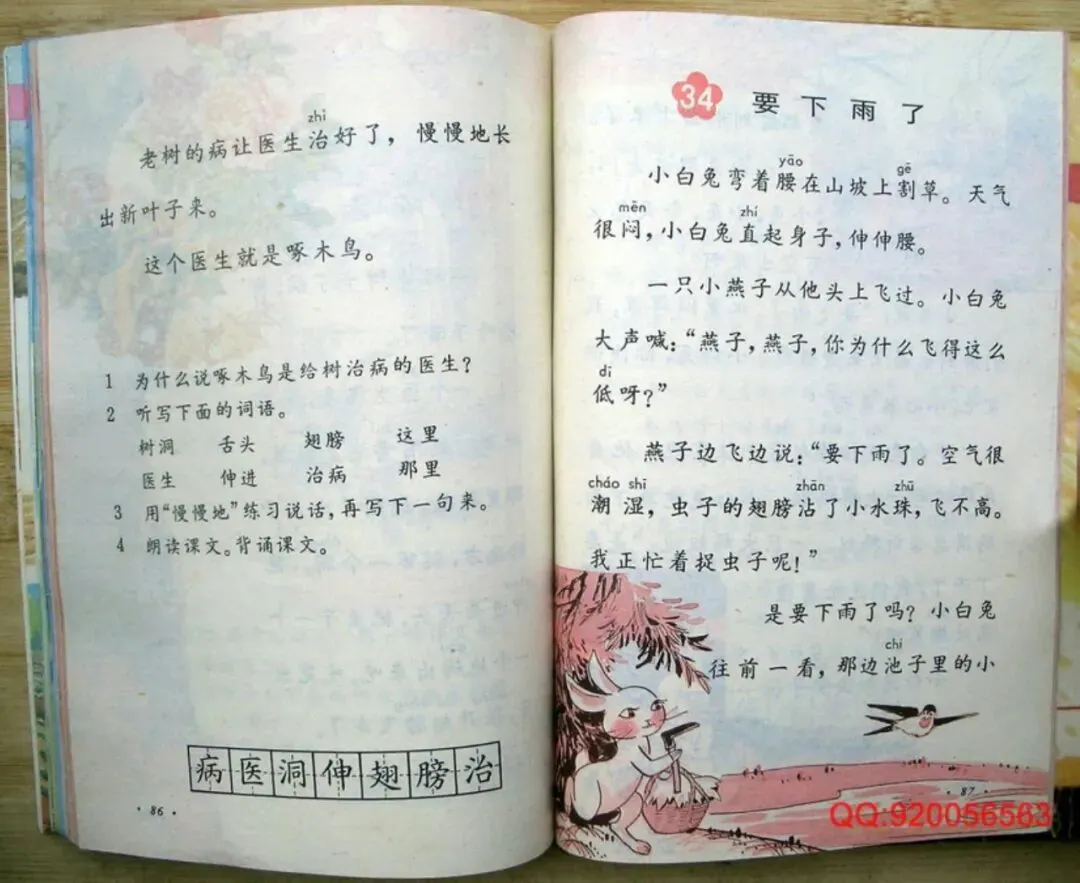 zhì
老树的病让医生治好了，慢慢地长
出新叶子来。
这个医生就是啄木鸟。
1 为什么说啄木鸟是给树治病的医生？
2 听写下面的词语。
树洞 舌头 翅膀 这里
医生 伸进 治病 那里
3 用“慢慢地”练习说话，再写下一句来。
4 朗读课文。背诵课文。
病医洞伸翅膀治
·86·
34 要下雨了
yāo gē
小白兔弯着腰在山坡上割草。天气
mēn zhí
很闷，小白兔直起身子，伸伸腰。
一只小燕子从他头上飞过。小白兔
大声喊：“燕子，燕子，你为什么飞得这么
dī
低呀？”
燕子边飞边说：“要下雨了。空气很
cháo shī zhān zhū
潮湿，虫子的翅膀沾了小水珠，飞不高。
我正忙着捉虫子呢！”
是要下雨了吗？小白兔
chí
往前一看，那边池子里的小
·87·
QQ:920056563